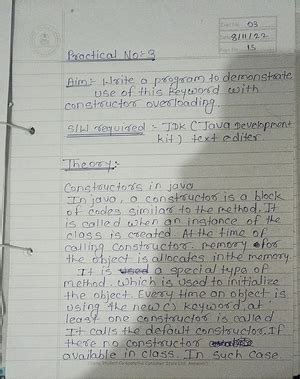 03
8/11/22
15
Practical No:- 3
Aim:- Write a program to demonstrate
use of this keyword with
constructor overloading
S/W required :- JDK (Java Development
kit) text editer
Theory:-
Constructors in java
In java, a constructor is a block
of codes similar to the method. It
is called when an instance of the
class is created. At the time of
calling constructor. memory for
the object is allocates in the memory.
It is used a special type of
method. which is used to initialize
the object. Every time an object is
using the new() keyword at
least one constructor is called
It calls the default constructor. If
there no constructor available
available in class. In such case